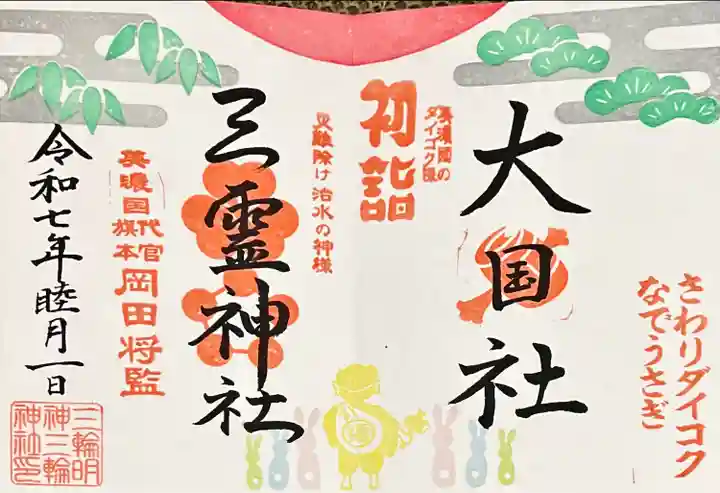 さわりダイコク
なでうさぎ
大国社
美濃国の
ダイコク様
初詣
災難除け 治水の神様
三霊神社
美濃国代官
旗本
岡田将監
令和七年睦月一日
三輪明
神三輪
神社印